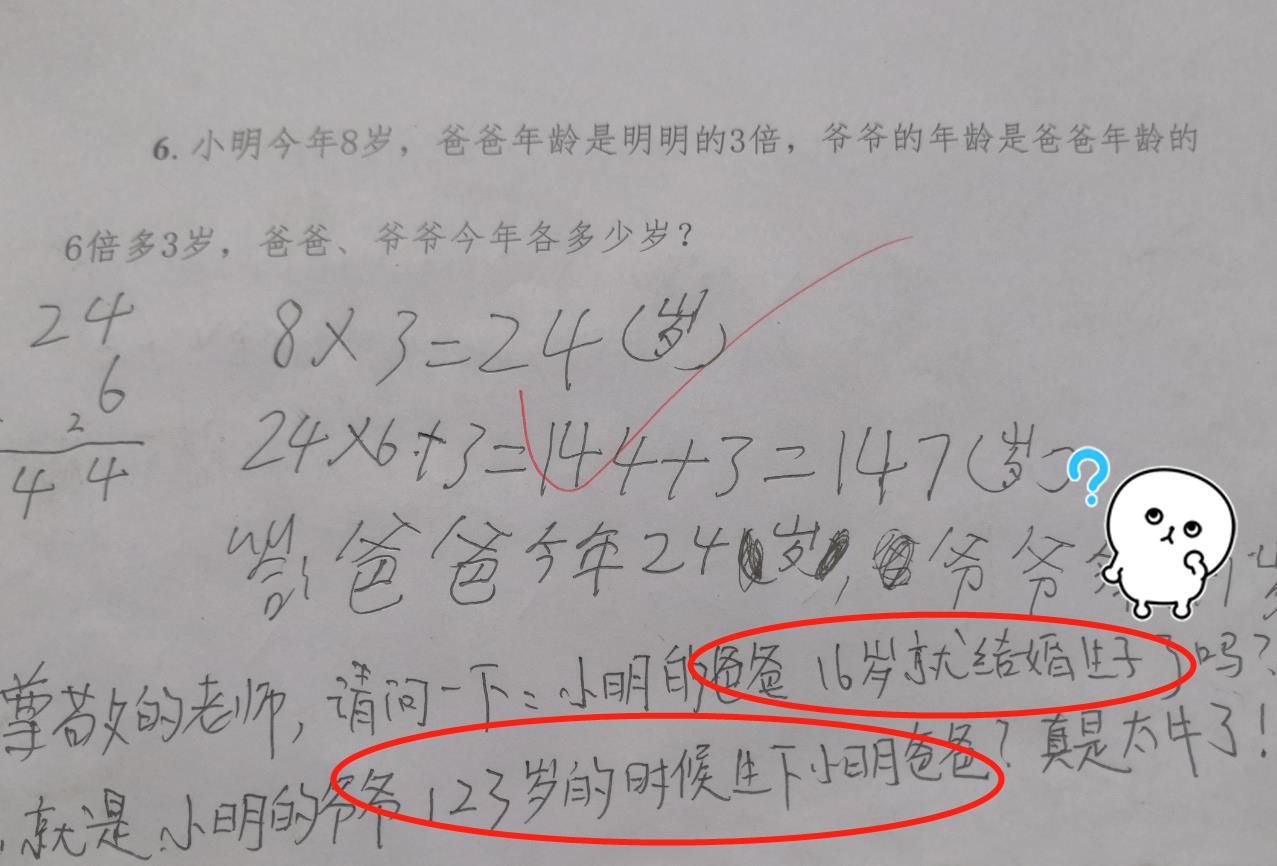 6. 小明今年8岁，爸爸年龄是明明的3倍，爷爷的年龄是爸爸年龄的
6倍多3岁，爸爸、爷爷今年各多少岁？
24
6
2
44
8×3=24(岁)
24×6+3=144+3=147(岁)
答：爸爸今年24岁，爷爷
尊敬的老师，请问一下：小明的爸爸 16岁就结婚生子了吗？
就是小明的爷爷 123岁的时候生下小明爸爸？真是太牛了！
?